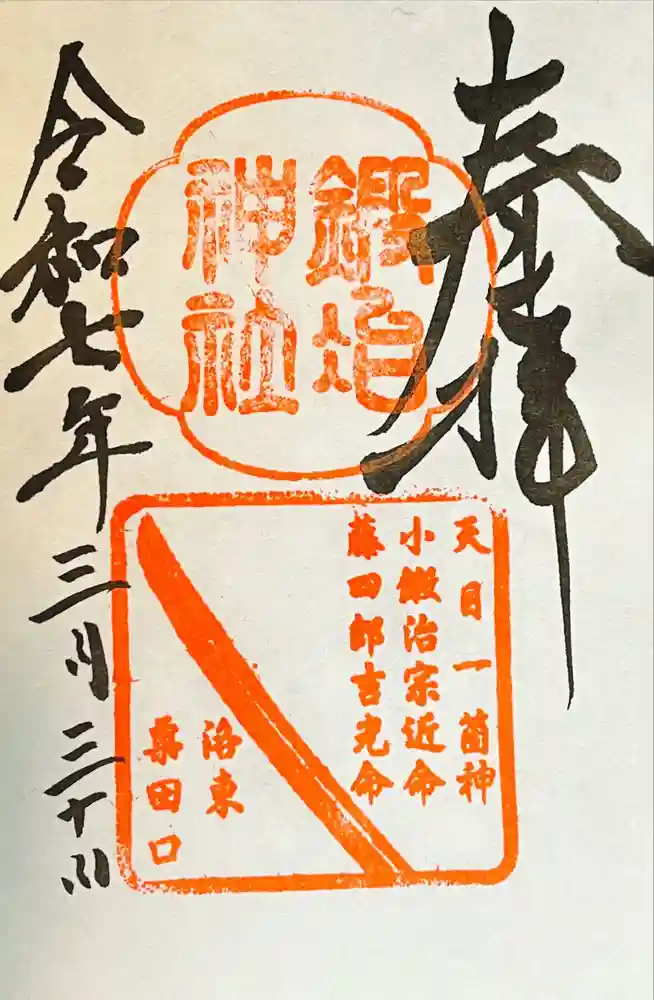 奉拝
鍛冶
神社
天目一箇神
小鍛冶宗近命
藤四郎吉光命
洛東
粟田口
令和七年三月三十日